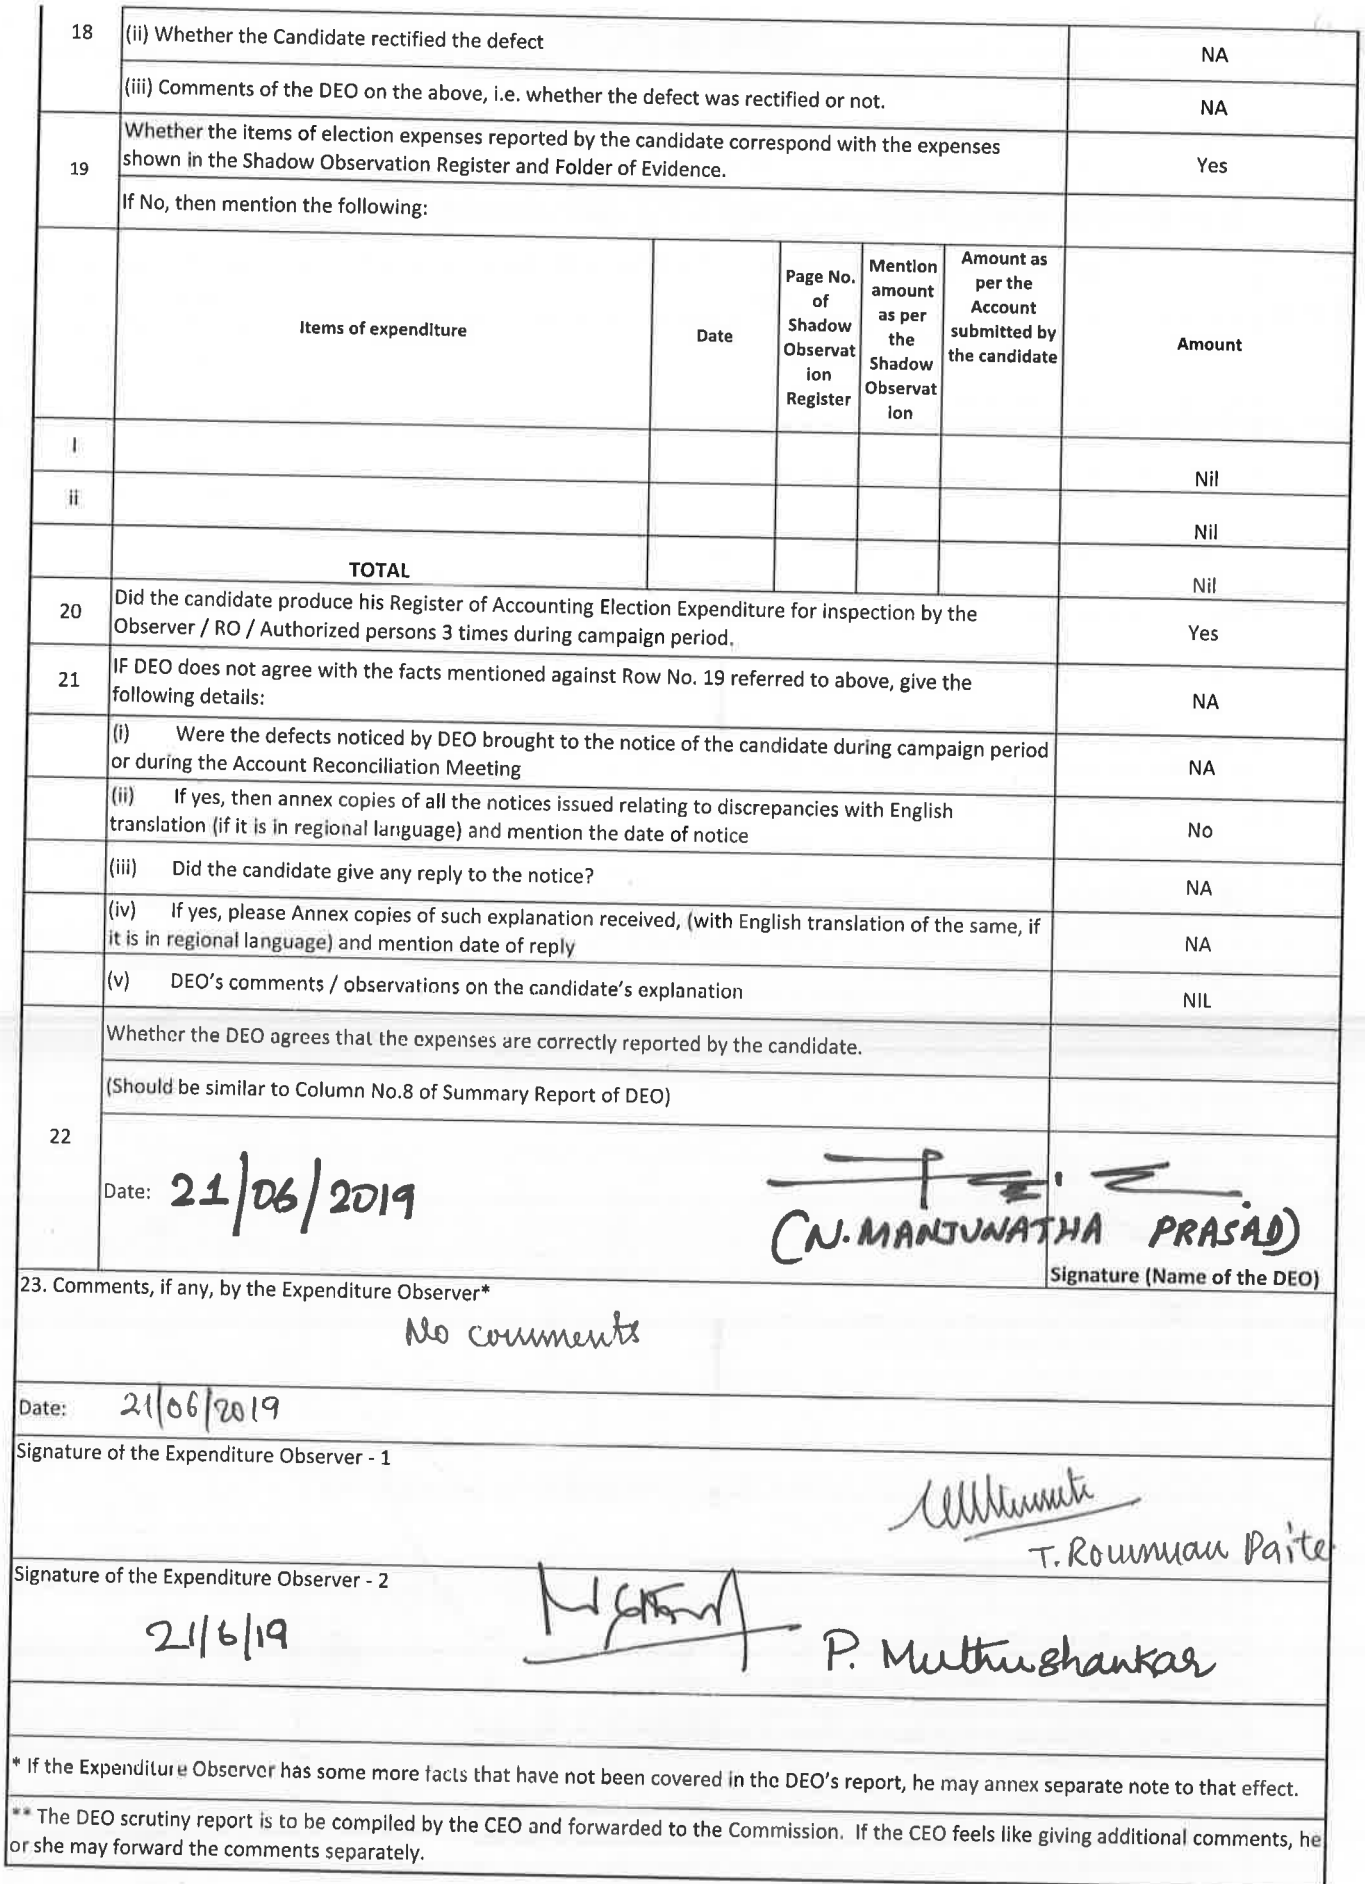 18
(ii) Whether the Candidate rectified the defect
NA
(iii) Comments of the DEO on the above, i.e. whether the defect was rectified or not.
NA
19
Whether the items of election expenses reported by the candidate correspond with the expenses
shown in the Shadow Observation Register and Folder of Evidence.
Yes
If No, then mention the following:
Items of expenditure
Date
Page No.
of
Shadow
Observat
ion
Register
Mention
amount
as per
the
Shadow
Observat
ion
Amount as
per the
Account
submitted by
the candidate
Amount
i
Nil
ii
Nil
TOTAL
Nil
20
Did the candidate produce his Register of Accounting Election Expenditure for inspection by the
Observer / RO / Authorized persons 3 times during campaign period.
Yes
21
IF DEO does not agree with the facts mentioned against Row No. 19 referred to above, give the
following details:
NA
(i) Were the defects noticed by DEO brought to the notice of the candidate during campaign period
or during the Account Reconciliation Meeting
NA
(ii) If yes, then annex copies of all the notices issued relating to discrepancies with English
translation (if it is in regional language) and mention the date of notice
No
(iii) Did the candidate give any reply to the notice?
NA
(iv) If yes, please Annex copies of such explanation received, (with English translation of the same, if
it is in regional language) and mention date of reply
NA
(v) DEO's comments / observations on the candidate's explanation
NIL
22
Whether the DEO agrees that the expenses are correctly reported by the candidate.
(Should be similar to Column No.8 of Summary Report of DEO)
Date: 21/06/2019
(N. MANJUNATHA PRASAD)
Signature (Name of the DEO)
23. Comments, if any, by the Expenditure Observer*
No comments
Date: 21/06/2019
Signature of the Expenditure Observer - 1
T. Roumuan Paite
Signature of the Expenditure Observer - 2
21/6/19
P. Muthushankar
* If the Expenditure Observer has some more facts that have not been covered in the DEO's report, he may annex separate note to that effect.
** The DEO scrutiny report is to be compiled by the CEO and forwarded to the Commission. If the CEO feels like giving additional comments, he
or she may forward the comments separately.